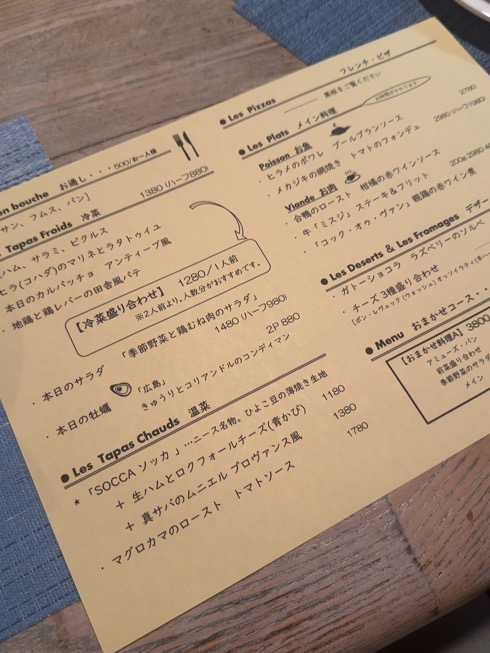 on bouche お通し・・・500/お一人様
サン、フムス、パン]
Tapas Froids 冷菜 1380(ハーフ880)
ハム、サラミ、ピクルス
ヒラ(コハダ)のマリネとラタトゥイユ
本日のカルパッチョ アンティーブ風
・地鶏と鶏レバーの田舎風パテ
【冷菜盛り合わせ】 1280/1人前
※2人前より。人数分がおすすめです。
・本日のサラダ 「季節野菜と鶏むね肉のサラダ」
1480(ハーフ980)
・本日の牡蠣 「広島」 2P 880
きゅうりとコリアンドルのコンディマン
● Les Tapas Chauds 温菜
★「SOCCA ソッカ」…ニース名物。ひよこ豆の薄焼き生地 1180
+ 生ハムとロクフォールチーズ(青かび) 1380
+ 真サバのムニエル プロヴァンス風 1780
・マグロカマのロースト トマトソース
● Les Pizzas フレンチ・ピザ
黒板をご覧ください
● Les Plats メイン料理
お時間かかります
Poisson お魚 2780
・ヒラメのポワレ ブールブランソース 2980(ハーフ1980)
・メカジキの網焼き トマトのフォンデュ
Viande お肉
・合鴨のロースト 柑橘の赤ワインソース
・牛「ミスジ」ステーキ&フリット 200g 2980.40
・「コック・オゥ・ヴァン」親鶏の赤ワイン煮
● Les Deserts & Les Fromages デザー
・ガトーショコラ ラズベリーのソルベ
・チーズ3種盛り合わせ
● Menu おまかせコース・・
【おまかせ料理A】 3800
アミューズ・パン
前菜盛り合わせ
季節野菜のサラダ
メイン